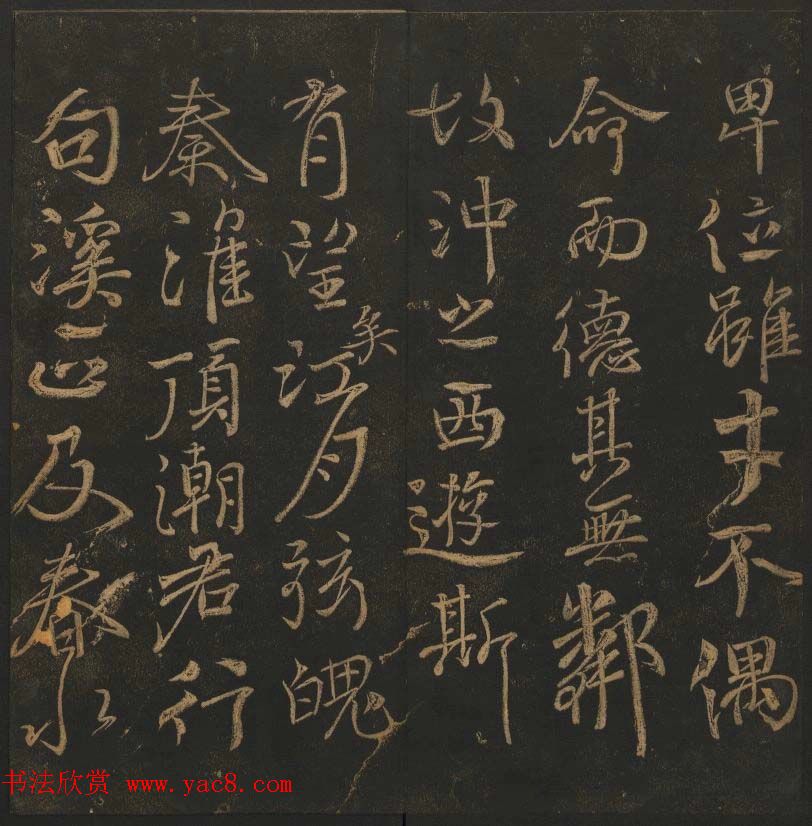 卑位雖才不偶
命而德其無鄰
故沖之西遊斯
有望矣江夕弦魄
秦淮頂潮君行
句溪正及春水
书法欣赏 www.yac8.com